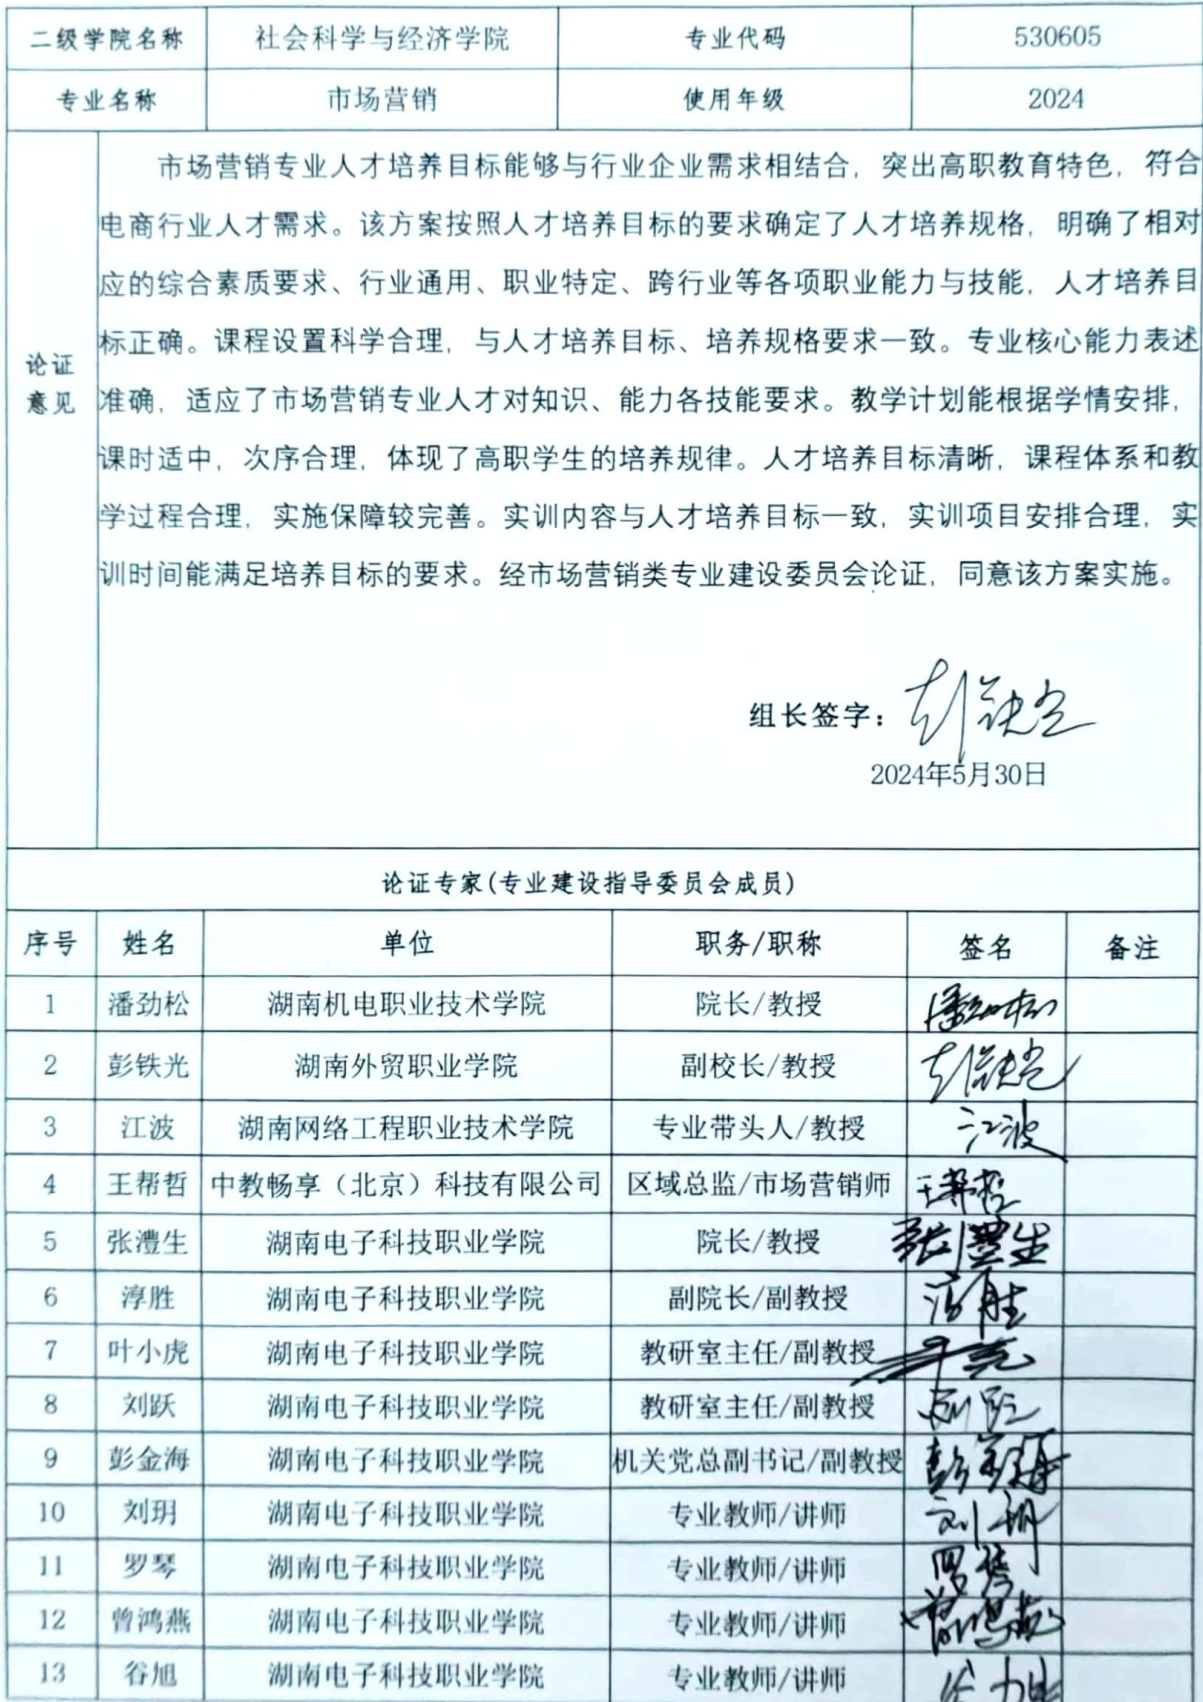 二级学院名称 社会科学与经济学院 专业代码 530605
专业名称 市场营销 使用年级 2024
论证意见
市场营销专业人才培养目标能够与行业企业需求相结合，突出高职教育特色，符合
电商行业人才需求。该方案按照人才培养目标的要求确定了人才培养规格，明确了相对
应的综合素质要求、行业通用、职业特定、跨行业等各项职业能力与技能，人才培养目
标正确。课程设置科学合理，与人才培养目标、培养规格要求一致。专业核心能力表述
准确，适应了市场营销专业人才对知识、能力各技能要求。教学计划能根据学情安排，
课时适中，次序合理，体现了高职学生的培养规律。人才培养目标清晰，课程体系和教
学过程合理，实施保障较完善。实训内容与人才培养目标一致，实训项目安排合理，实
训时间能满足培养目标的要求。经市场营销类专业建设委员会论证，同意该方案实施。
组长签字：彭铁光
2024年5月30日
论证专家(专业建设指导委员会成员)
序号 姓名 单位 职务/职称 签名 备注
1 潘劲松 湖南机电职业技术学院 院长/教授 潘劲松
2 彭铁光 湖南外贸职业学院 副校长/教授 彭铁光
3 江波 湖南网络工程职业技术学院 专业带头人/教授 江波
4 王帮哲 中教畅享（北京）科技有限公司 区域总监/市场营销师 王帮哲
5 张澧生 湖南电子科技职业学院 院长/教授 张澧生
6 淳胜 湖南电子科技职业学院 副院长/副教授 淳胜
7 叶小虎 湖南电子科技职业学院 教研室主任/副教授
8 刘跃 湖南电子科技职业学院 教研室主任/副教授 刘跃
9 彭金海 湖南电子科技职业学院 机关党总副书记/副教授 彭金海
10 刘玥 湖南电子科技职业学院 专业教师/讲师 刘玥
11 罗琴 湖南电子科技职业学院 专业教师/讲师 罗琴
12 曾鸿燕 湖南电子科技职业学院 专业教师/讲师 曾鸿燕
13 谷旭 湖南电子科技职业学院 专业教师/讲师 谷旭